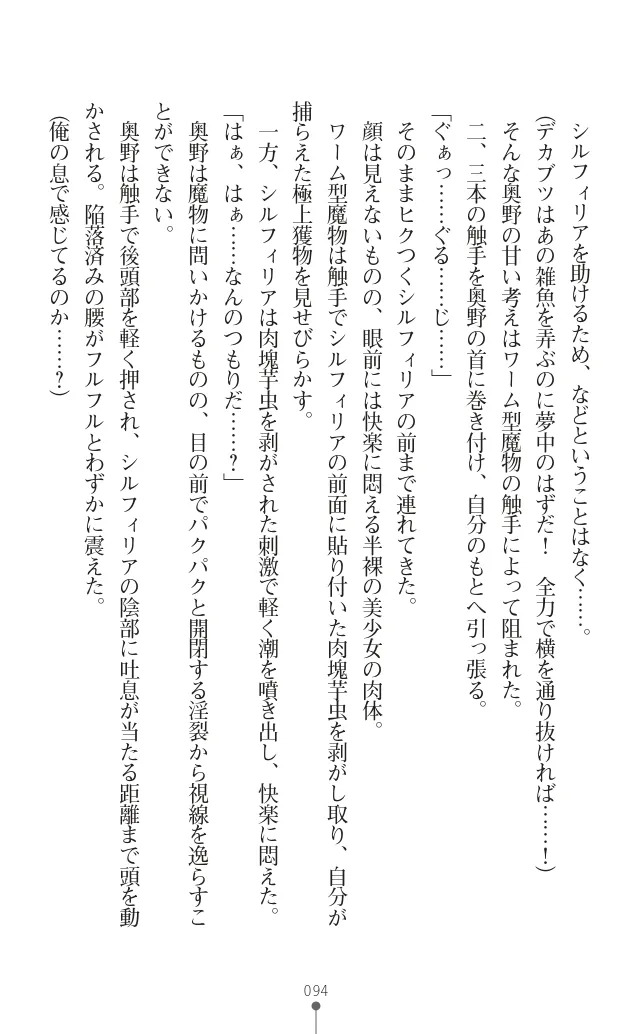 シルフィリアを助けるため、などということはなく……。
(デカブツはあの雑魚を弄ぶのに夢中のはずだ！　全力で横を通り抜ければ……！)
そんな奥野の甘い考えはワーム型魔物の触手によって阻まれた。
二、三本の触手を奥野の首に巻き付け、自分のもとへ引っ張る。
「ぐぁっ……ぐる……じ……」
そのままヒクつくシルフィリアの前まで連れてきた。
顔は見えないものの、眼前には快楽に悶える半裸の美少女の肉体。
ワーム型魔物は触手でシルフィリアの前面に貼り付いた肉塊芋虫を剥がし取り、自分が
捕らえた極上獲物を見せびらかす。
一方、シルフィリアは肉塊芋虫を剥がされた刺激で軽く潮を噴き出し、快楽に悶えた。
「はぁ、はぁ……なんのつもりだ……？」
奥野は魔物に問いかけるものの、目の前でパクパクと開閉する淫裂から視線を逸らすこ
とができない。
奥野は触手で後頭部を軽く押され、シルフィリアの陰部に吐息が当たる距離まで頭を動
かされる。陥落済みの腰がフルフルとわずかに震えた。
(俺の息で感じてるのか……？)
094